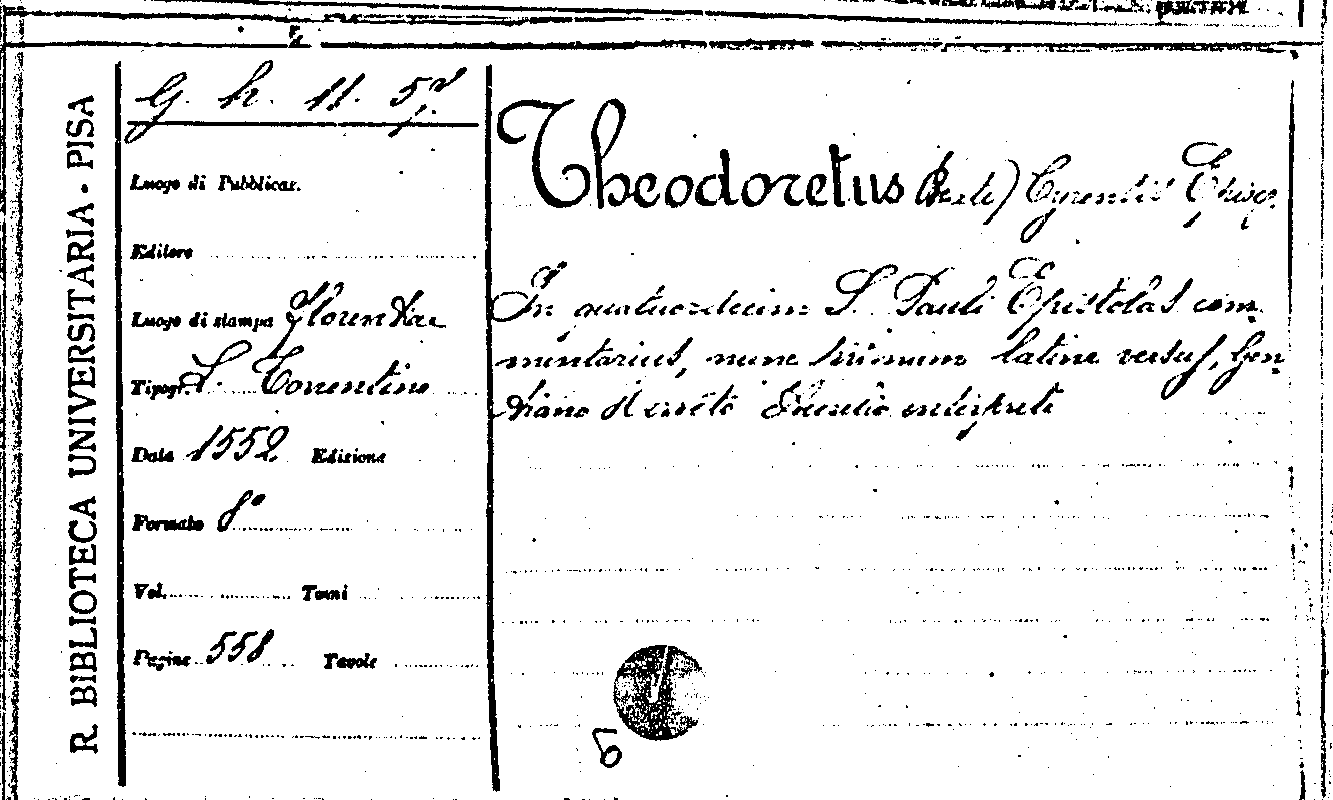 R. BIBLIOTECA UNIVERSITARIA - PISA
G. h. 11. 57
Luogo di Pubblicaz.
Editore
Luogo di stampa Florentiae
Tipogr. L. Torrentino
Data 1552 Edizione
Formato 8°
Vol. Tomi
Pagine 558 Tavole
Theodoretus (Beati) Cyrensis Episc.
In quatuordecim S. Pauli Epistolas com-
mentarius, nunc primum latine versus, Gen-
tiano Herveto interprete
6